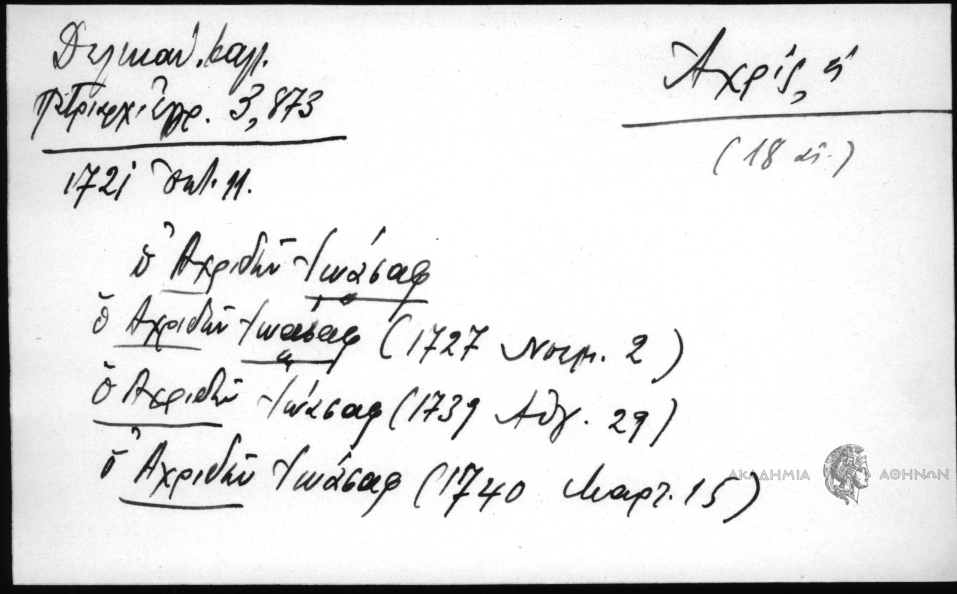 Δελικάν. Καλ.
Πατριαρχ. Ἔγγρ. 3, 873
Ἀχρίς, ἡ
(18 αἰ.)
1721 Ὀκτ. 11.
ὁ Ἀχριδῶν Ἰωάσαφ
ὁ Ἀχριδῶν Ἰωάσαφ (1727 Νοεμ. 2)
ὁ Ἀχριδῶν Ἰωάσαφ (1739 Αὐγ. 29)
ὁ Ἀχριδῶν Ἰωάσαφ (1740 Μαρτ. 15)
ΑΚΑΔΗΜΙΑ ΑΘΗΝΩΝ